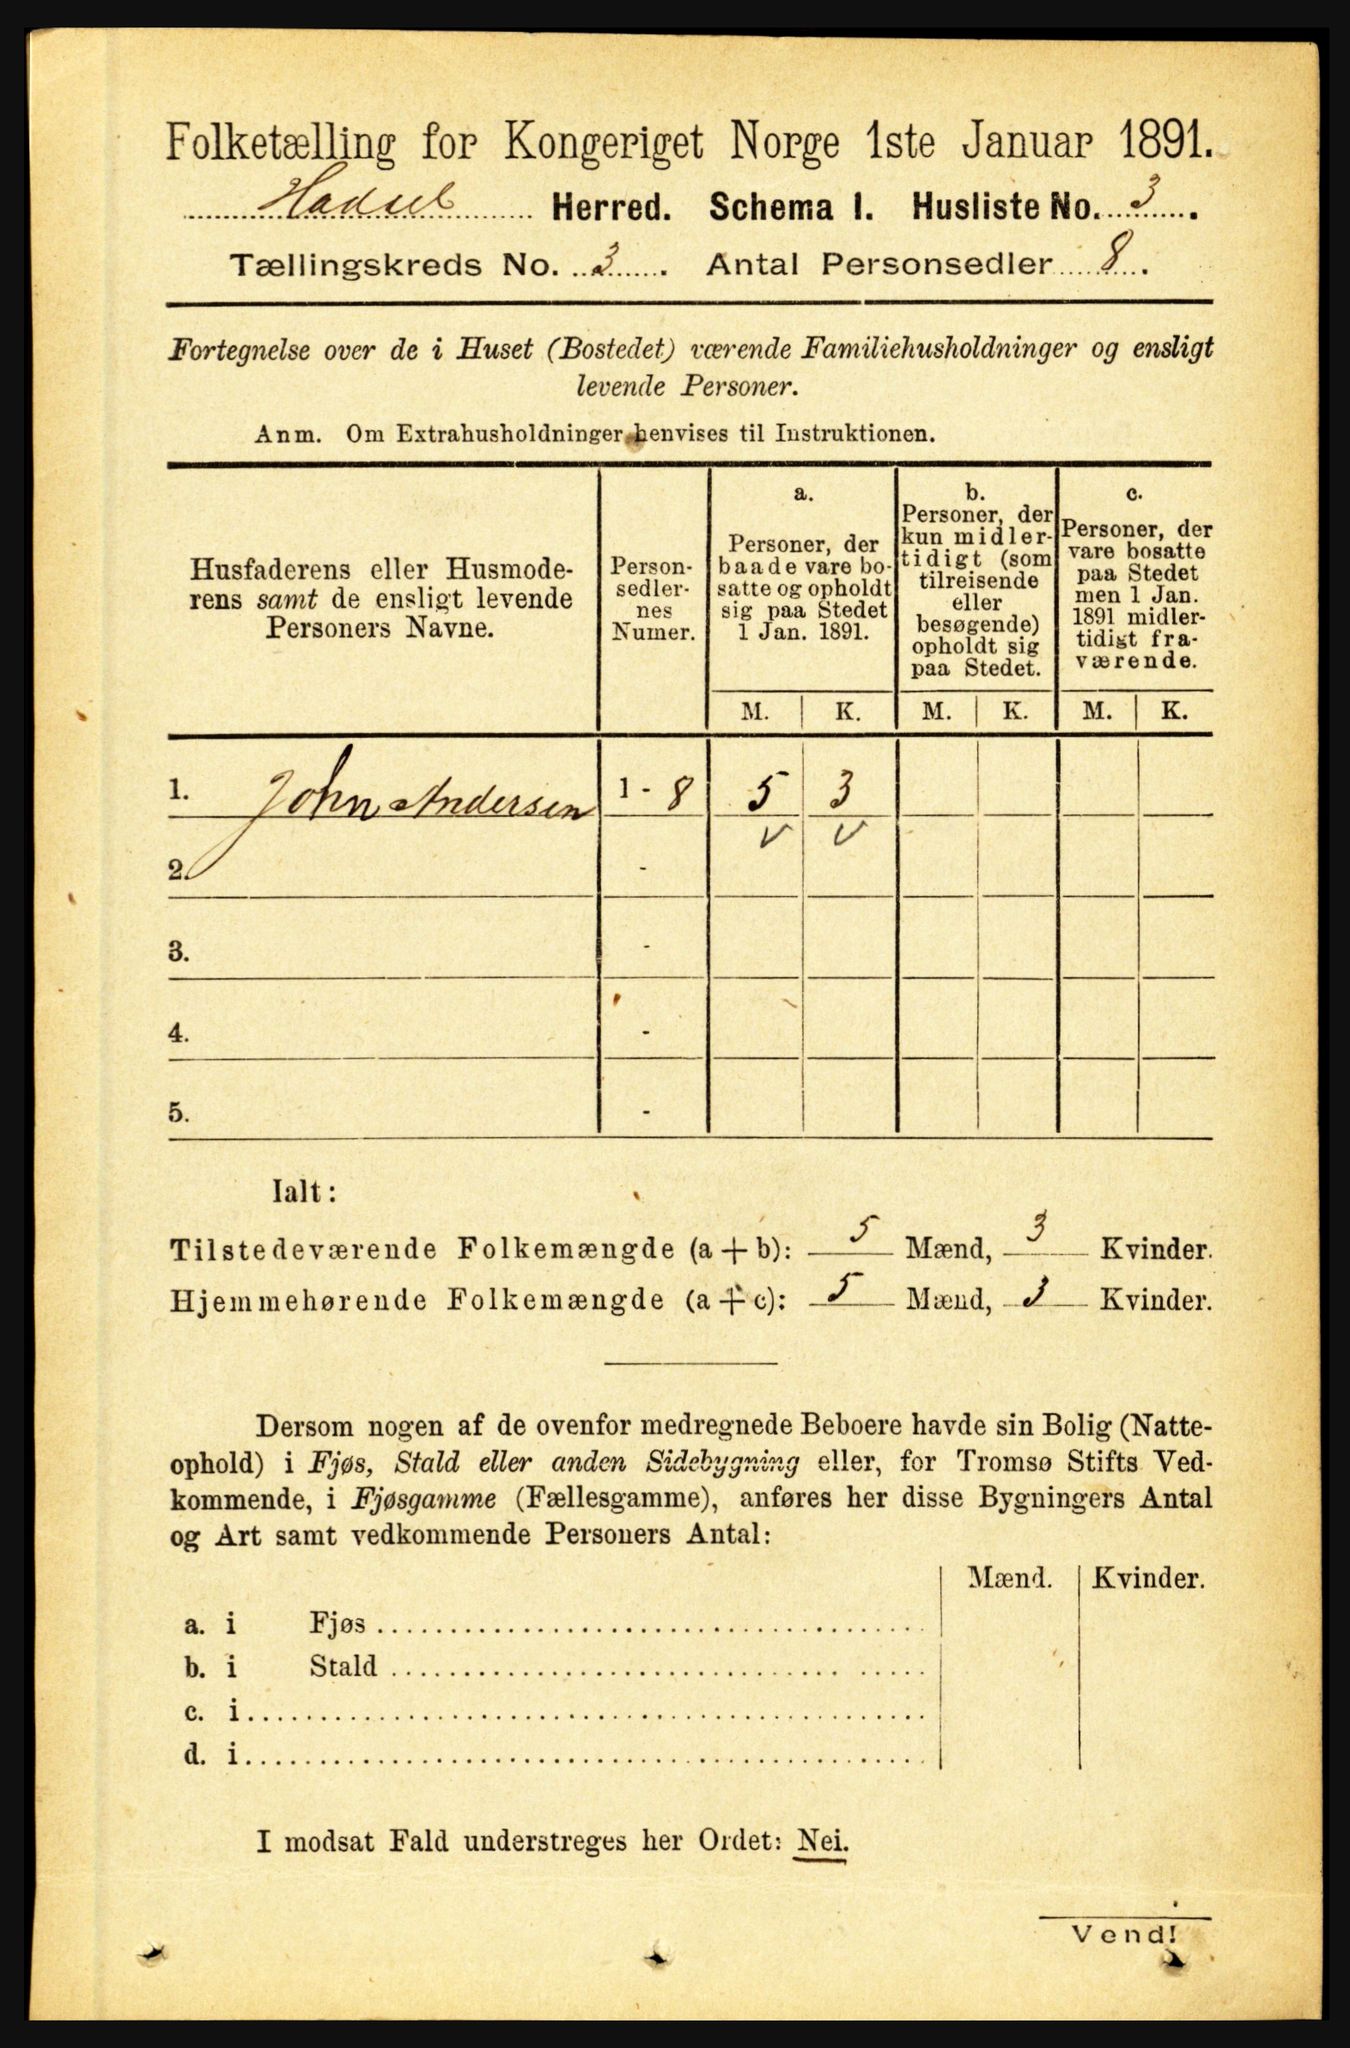 Folketælling for Kongeriget Norge 1ste Januar 1891.
Hadsel Herred. Schema I. Husliste No. 3.
Tællingskreds No. 3. Antal Personsedler 8.
Fortegnelse over de i Huset (Bostedet) værende Familiehusholdninger og ensligt
levende Personer.
Anm. Om Extrahusholdninger henvises til Instruktionen.
Husfaderens eller Husmode-
rens samt de ensligt levende
Personers Navne.
Person-
sedler-
nes
Numer.
a.
Personer, der
baade vare bo-
satte og opholdt
sig paa Stedet
1 Jan. 1891.
b.
Personer, der
kun midler-
tidigt (som
tilreisende
eller
besøgende)
opholdt sig
paa Stedet.
c.
Personer, der
vare bosatte
paa Stedet
men 1 Jan.
1891 midler-
tidigt fra-
værende.
M. K. M. K. M. K.
1. John Andersen 1 - 8 5 3
v v
2. -
3. -
4. -
5. -
Ialt:
Tilstedeværende Folkemængde (a + b): 5 Mænd, 3 Kvinder.
Hjemmehørende Folkemængde (a + c): 5 Mænd, 3 Kvinder.
Dersom nogen af de ovenfor medregnede Beboere havde sin Bolig (Natte-
ophold) i Fjøs, Stald eller anden Sidebygning eller, for Tromsø Stifts Ved-
kommende, i Fjøsgamme (Fællesgamme), anføres her disse Bygningers Antal
og Art samt vedkommende Personers Antal:
Mænd. Kvinder.
a. i Fjøs
b. i Stald
c. i
d. i
I modsat Fald understreges her Ordet: Nei.
Vend!